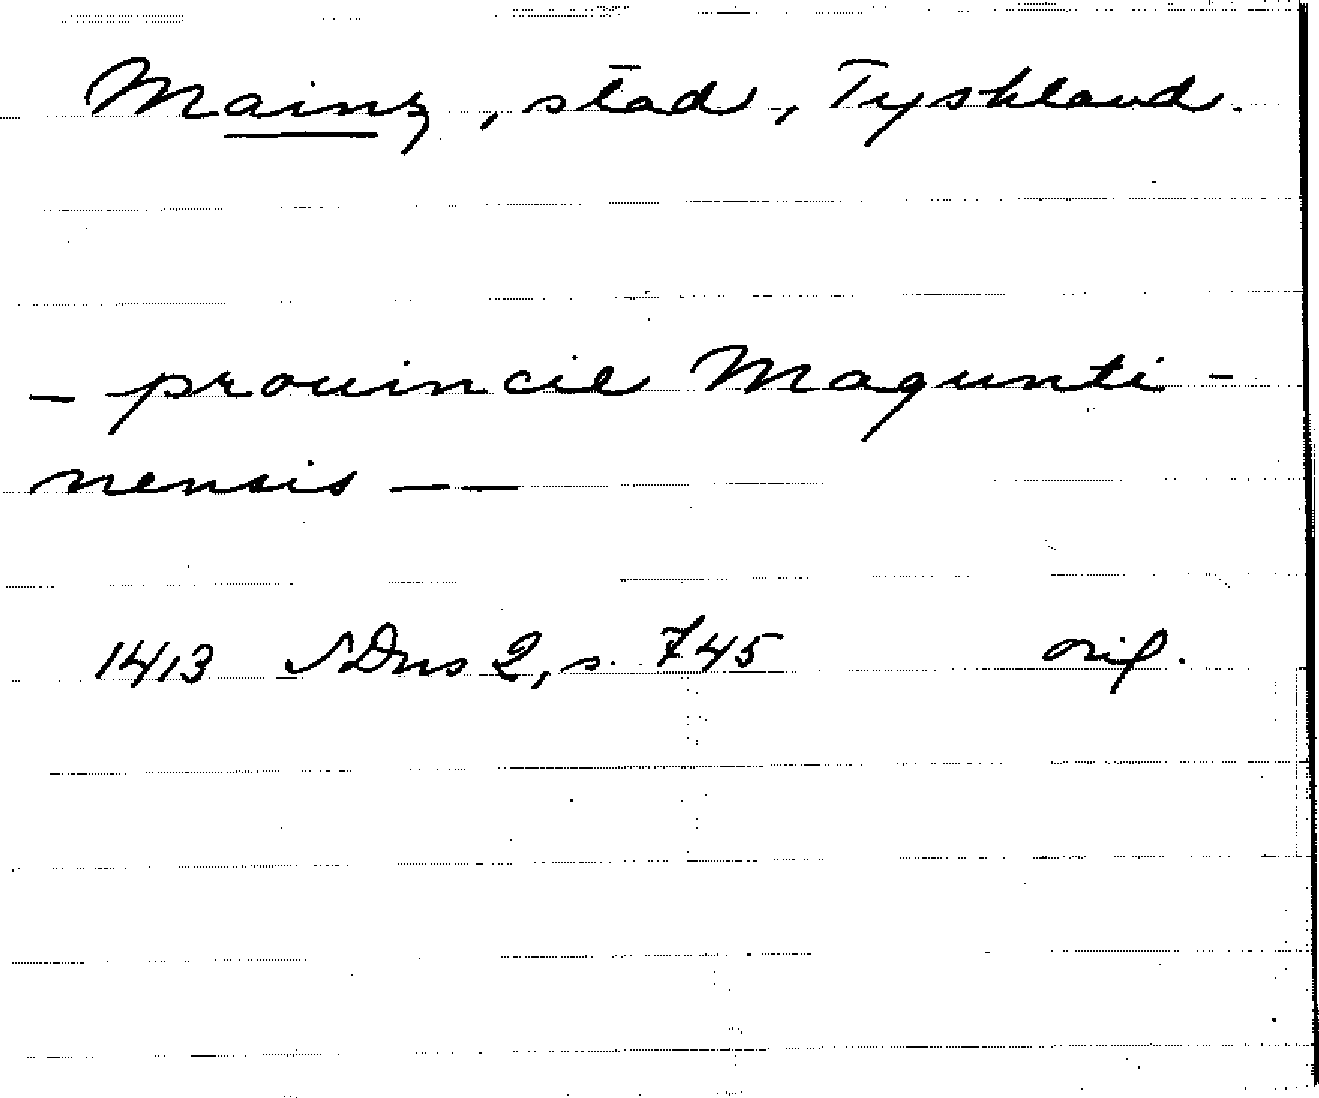 Mainz, stad, Tyskland.
- prouincie Magunti-
nensis — —
1413 SDns 2, s. 745 orig.